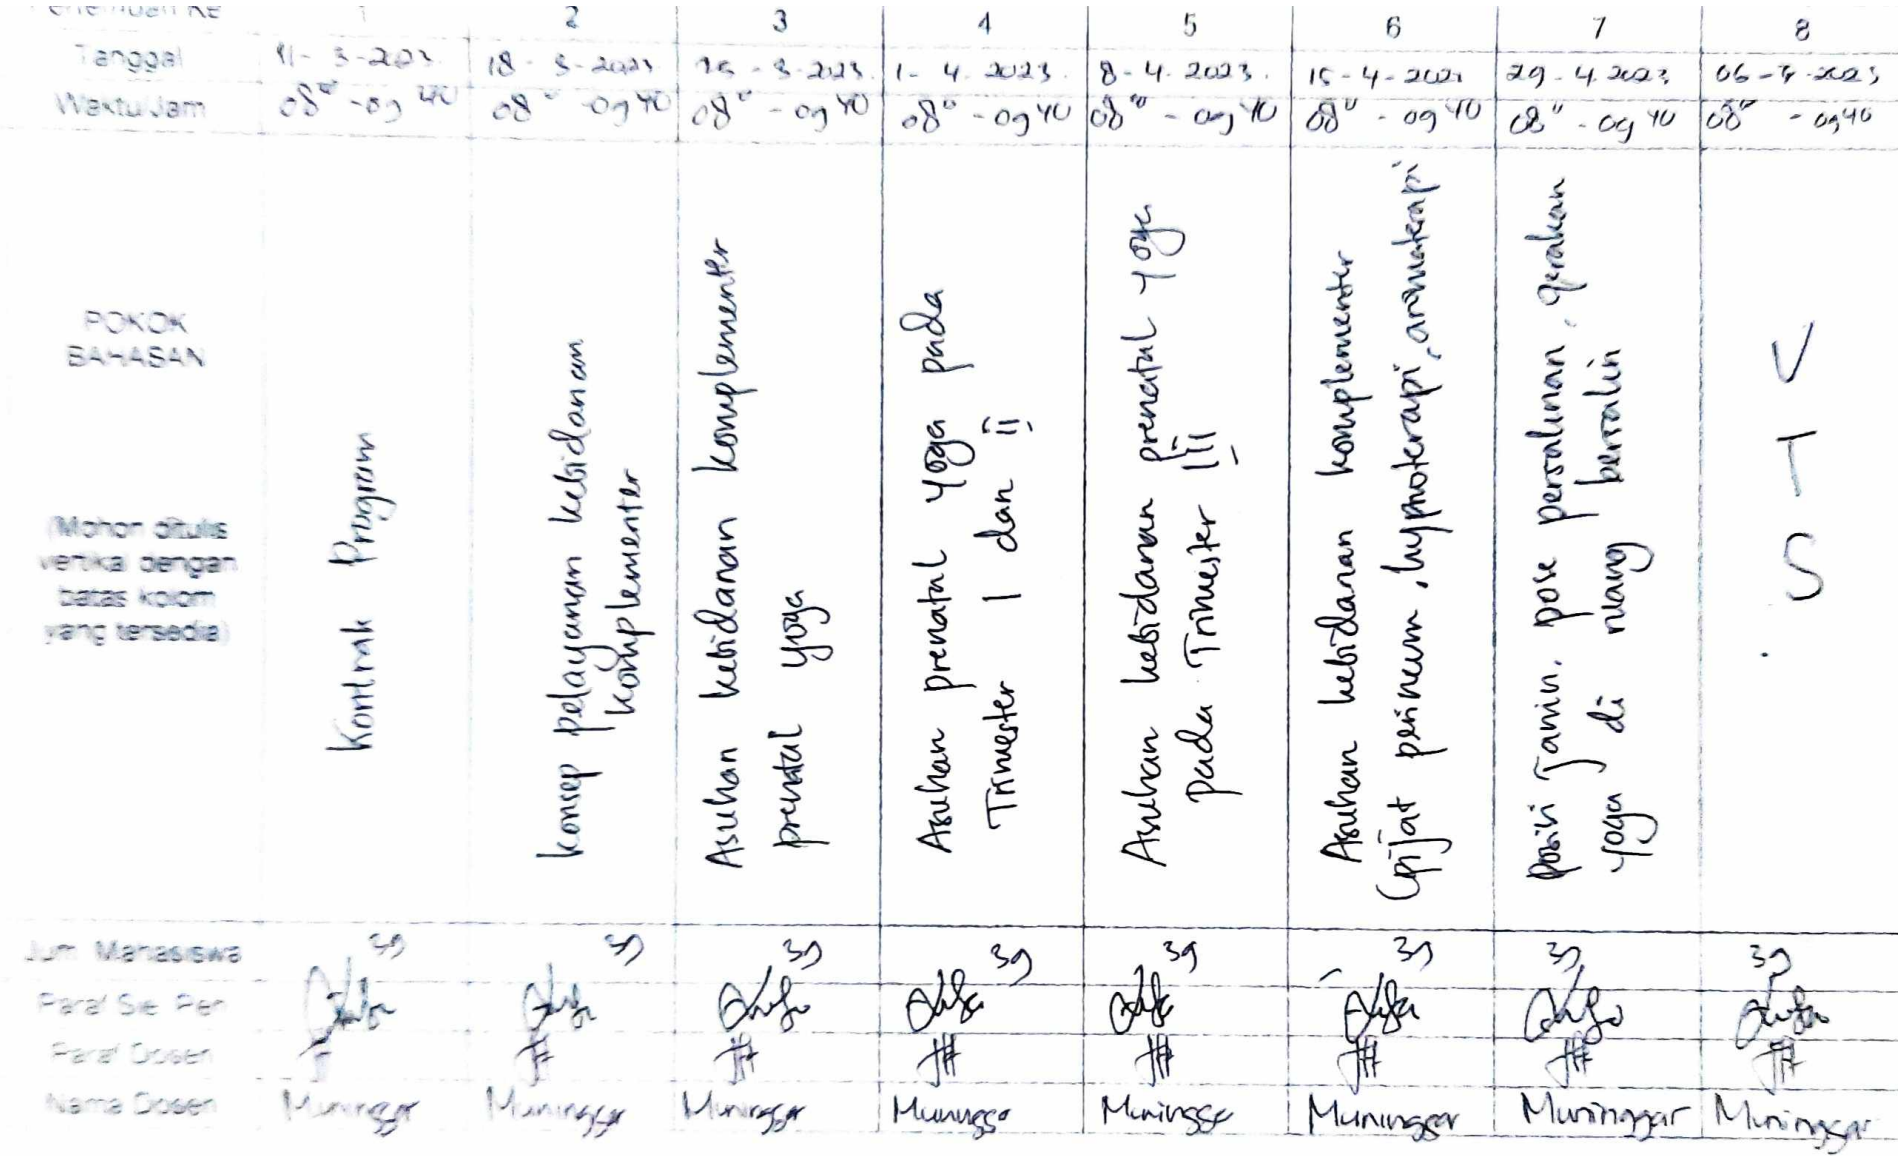 Pertemuan Ke 1 2 3 4 5 6 7 8
Tanggal 11-3-2023 18-3-2023 25-3-2023 1-4-2023. 8-4-2023. 15-4-2023 29-4-2023 06-5-2023
Waktu/Jam 08⁰⁰-09⁴⁰ 08⁰⁰-09⁴⁰ 08⁰⁰-09⁴⁰ 08⁰⁰-09⁴⁰ 08⁰⁰-09⁴⁰ 08⁰⁰-09⁴⁰ 08⁰⁰-09⁴⁰ 08⁰⁰-09⁴⁰
POKOK
BAHASAN
(Mohon ditulis
vertikal dengan
batas kolom
yang tersedia)
Kontrak Program
Konsep pelayanan kebidanan
Komplementer
Asuhan kebidanan komplementer
prenatal yoga
Asuhan prenatal yoga pada
Trimester I dan II
Asuhan kebidanan prenatal yoga
pada Trimester III
Asuhan kebidanan komplementer
(pijat perineum, hypnoterapi, aromaterapi
posisi Janin, pose persalinan, gerakan
yoga di ruang bersalin
U
T
S
Jum Mahasiswa 39 39 39 39 39 39 39 39
Paraf Sie Pen
Paraf Dosen
Nama Dosen Muninggar Muninggar Muninggar Muninggar Muninggar Muninggar Muninggar Muninggar